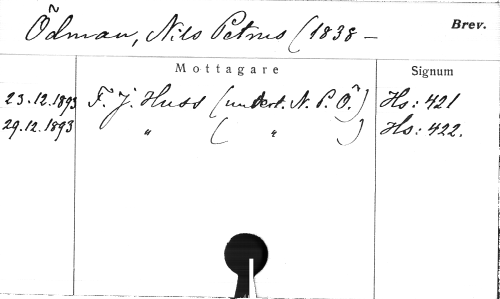 Ödman, Nils Petrus (1838 –
Brev.
Mottagare
Signum
23.12.1893 F. J. Huss (undert. N. P. Ö.) Hs: 421
29.12.1893 " ( " ) Hs: 422.